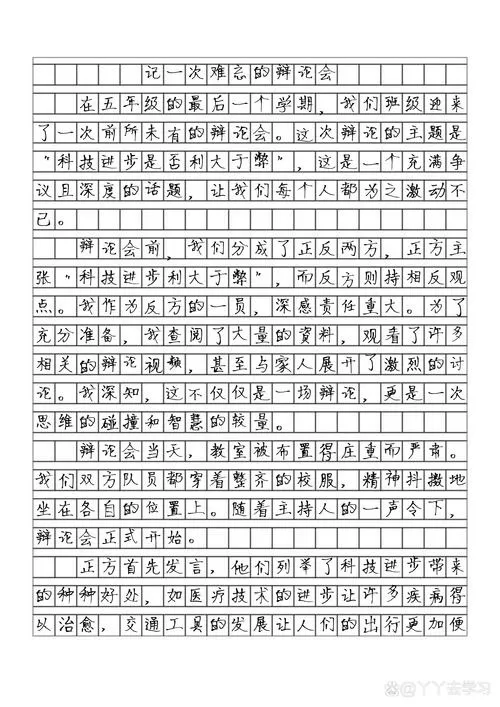 记一次难忘的辩论会
在五年级的最后一个学期，我们班级迎来
了一次前所未有的辩论会。这次辩论的主题是
“科技进步是否利大于弊”，这是一个充满争
议且深度的话题，让我们每个人都为之激动不
已。
辩论会前，我们分成了正反两方，正方主
张“科技进步利大于弊”，而反方则持相反观
点。我作为反方的一员，深感责任重大。为了
充分准备，我查阅了大量的资料，观看了许多
相关的辩论视频，甚至与家人展开了激烈的讨
论。我深知，这不仅仅是一场辩论，更是一次
思维的碰撞和智慧的较量。
辩论会当天，教室被布置得庄重而严肃。
我们双方队员都穿着整齐的校服，精神抖擞地
坐在各自的位置上。随着主持人的一声令下，
辩论会正式开始。
正方首先发言，他们列举了科技进步带来
的种种好处，如医疗技术的进步让许多疾病得
以治愈，交通工具的发展让人们的出行更加便
@丫丫去学习